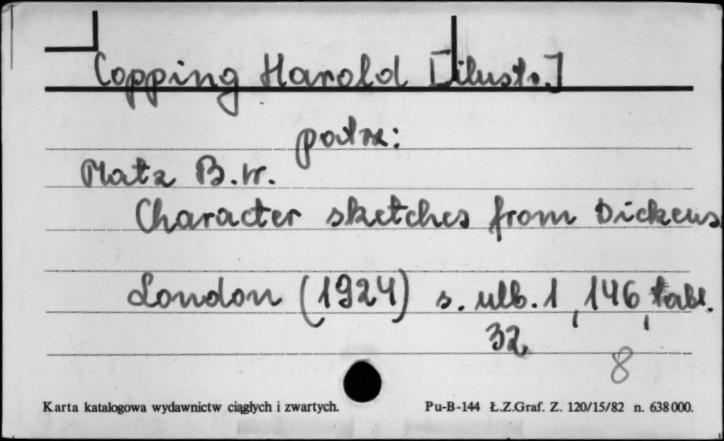 Copping Harold [ilustr.]
patrz:
Matz B.W.
Character sketches from Dickens
London (1924) s. nlb. 1, 146, tabl.
32,
8
Karta katalogowa wydawnictw ciągłych i zwartych. Pu-B-144 Ł.Z.Graf. Z. 120/15/82 n. 638000.